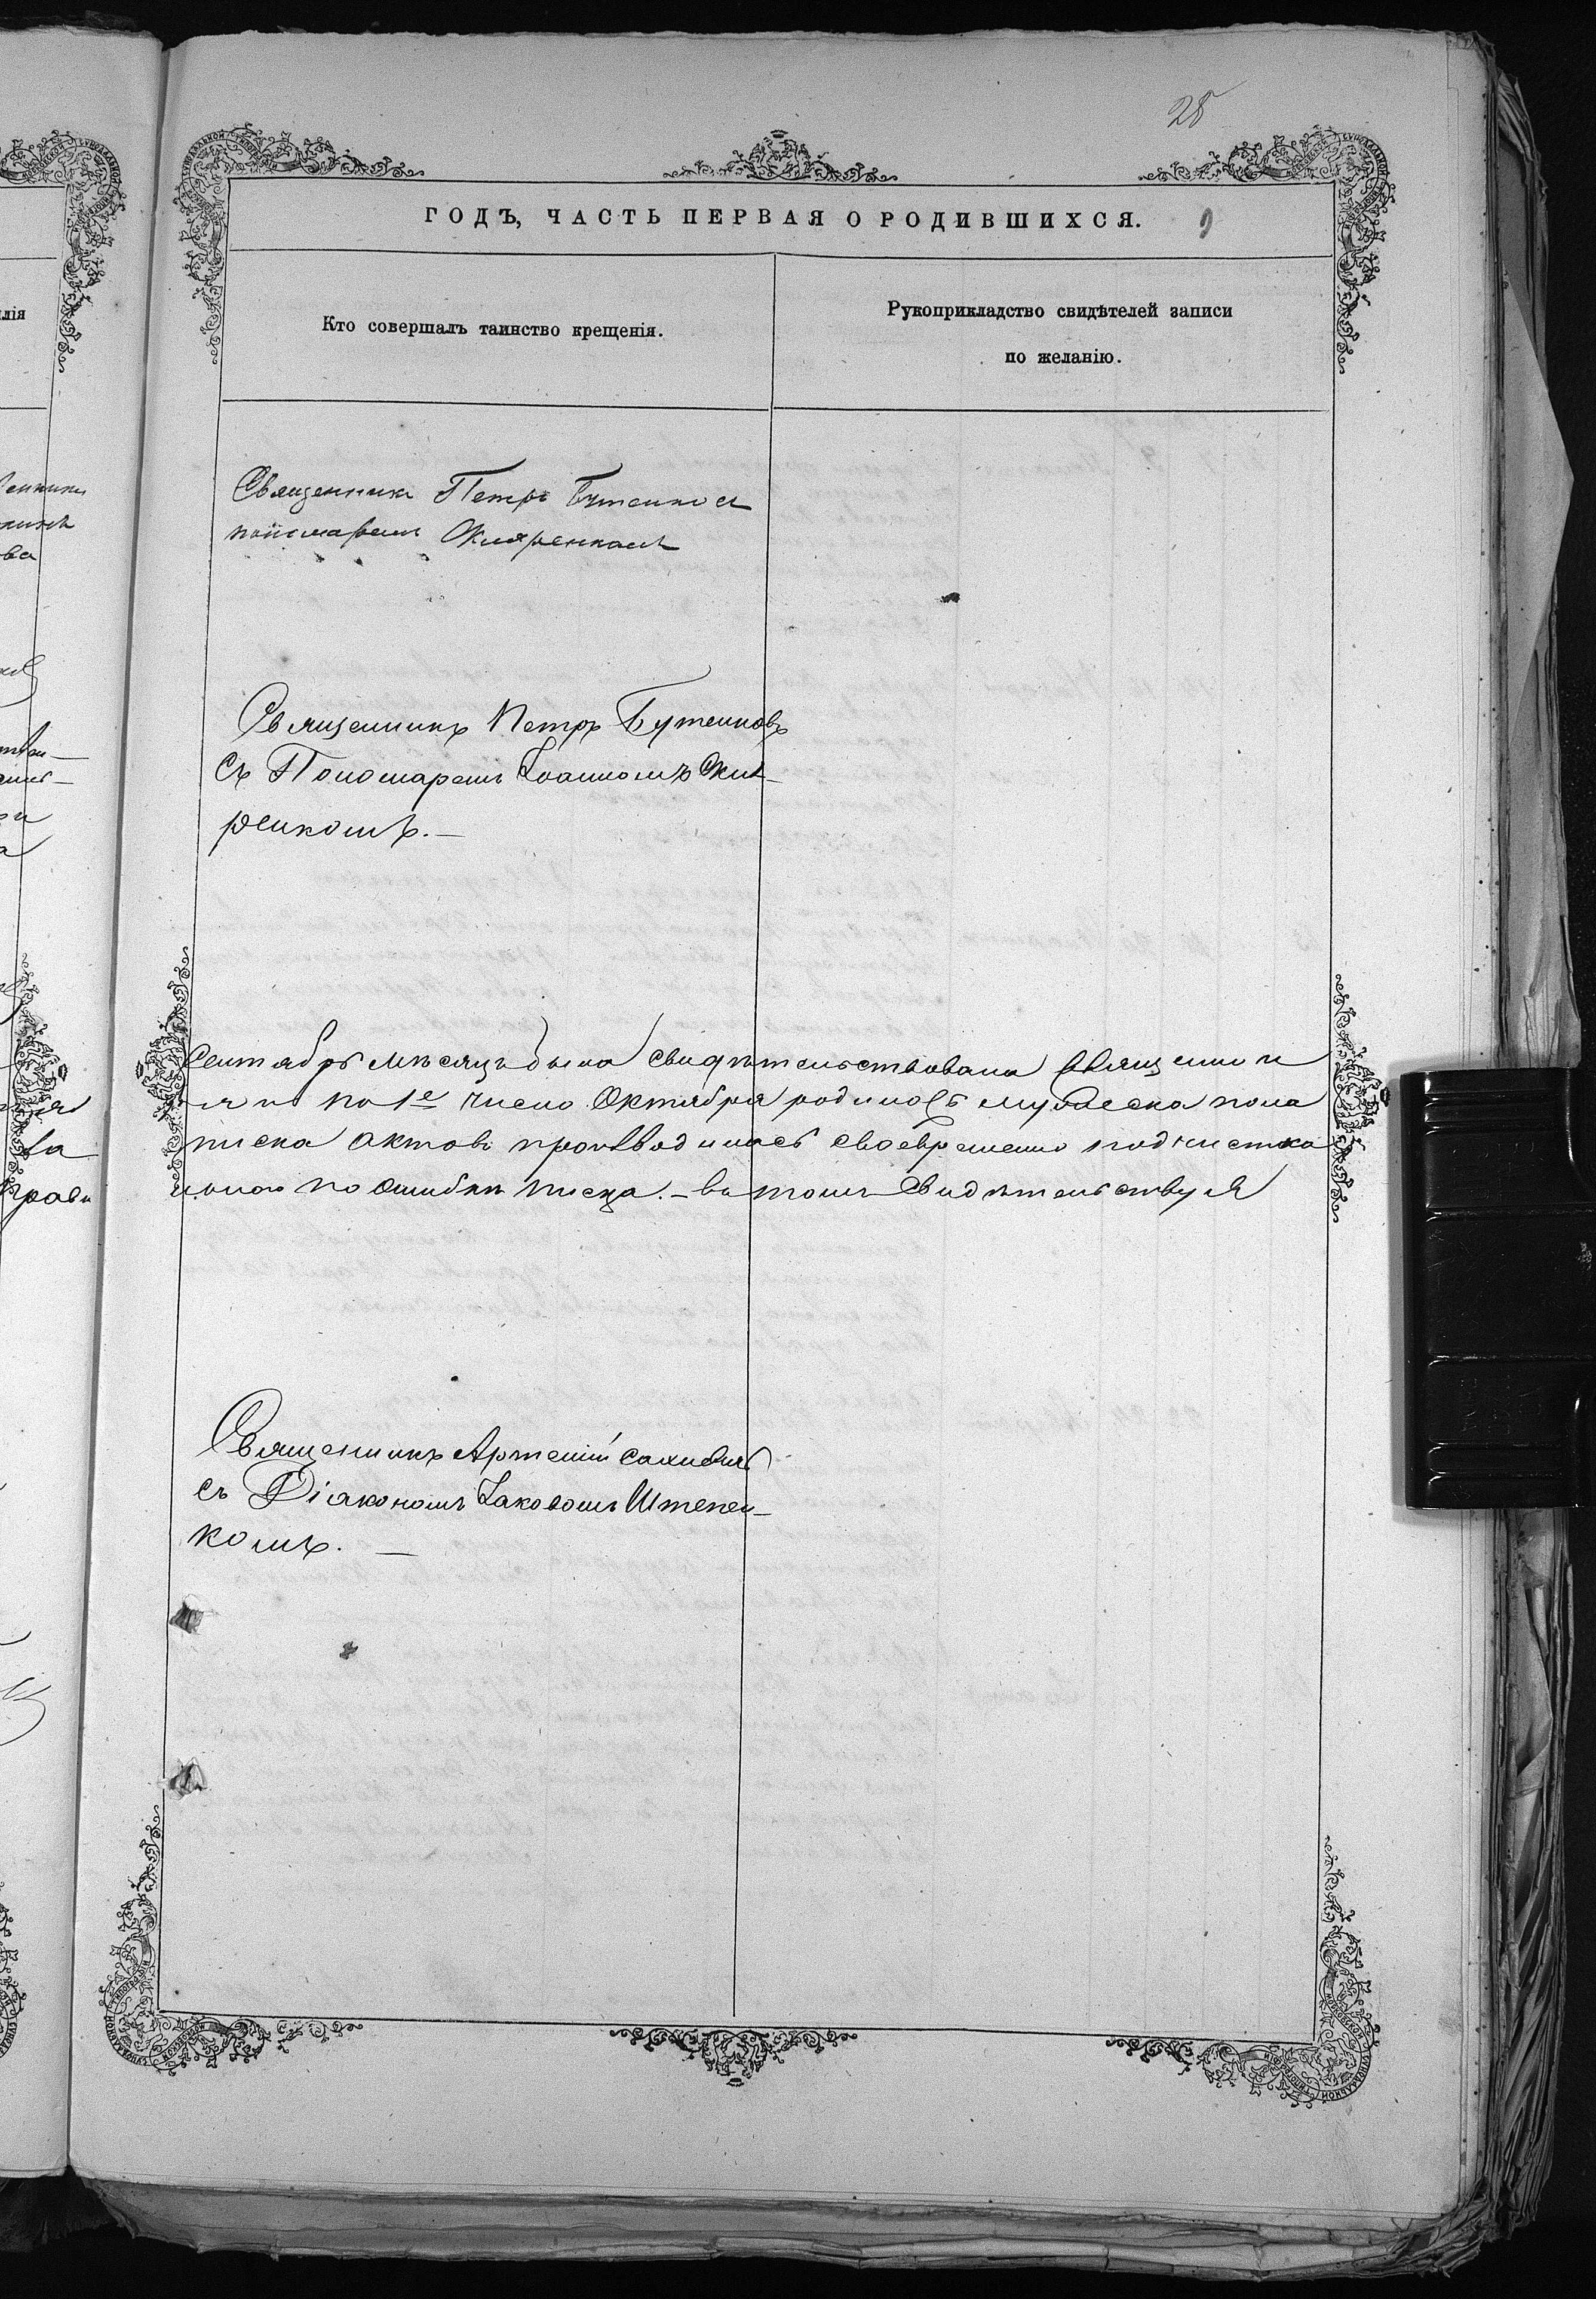 28
ГОДЪ, ЧАСТЬ ПЕРВАЯ О РОДИВШИХСЯ.
Кто совершалъ таинство крещенія.
Рукоприкладство свидѣтелей записи
по желанію.
Священникъ Петръ Бутенковъ
пономаремъ
Священникъ Петръ Бутенковъ
Съ Пономаремъ Іоанномъ Скля-
ренкомъ.—
Сентябрь мѣсяцъ была свидѣтельствована Священни
по 1е число Октября родилось мужеска пола
писка актовъ производилась своевременно подчистка
по ошибкѣ писца.- въ томъ свидѣтельствуя
Священникъ Артемій
съ Діакономъ Іаковомъ Штепен-
комъ. —